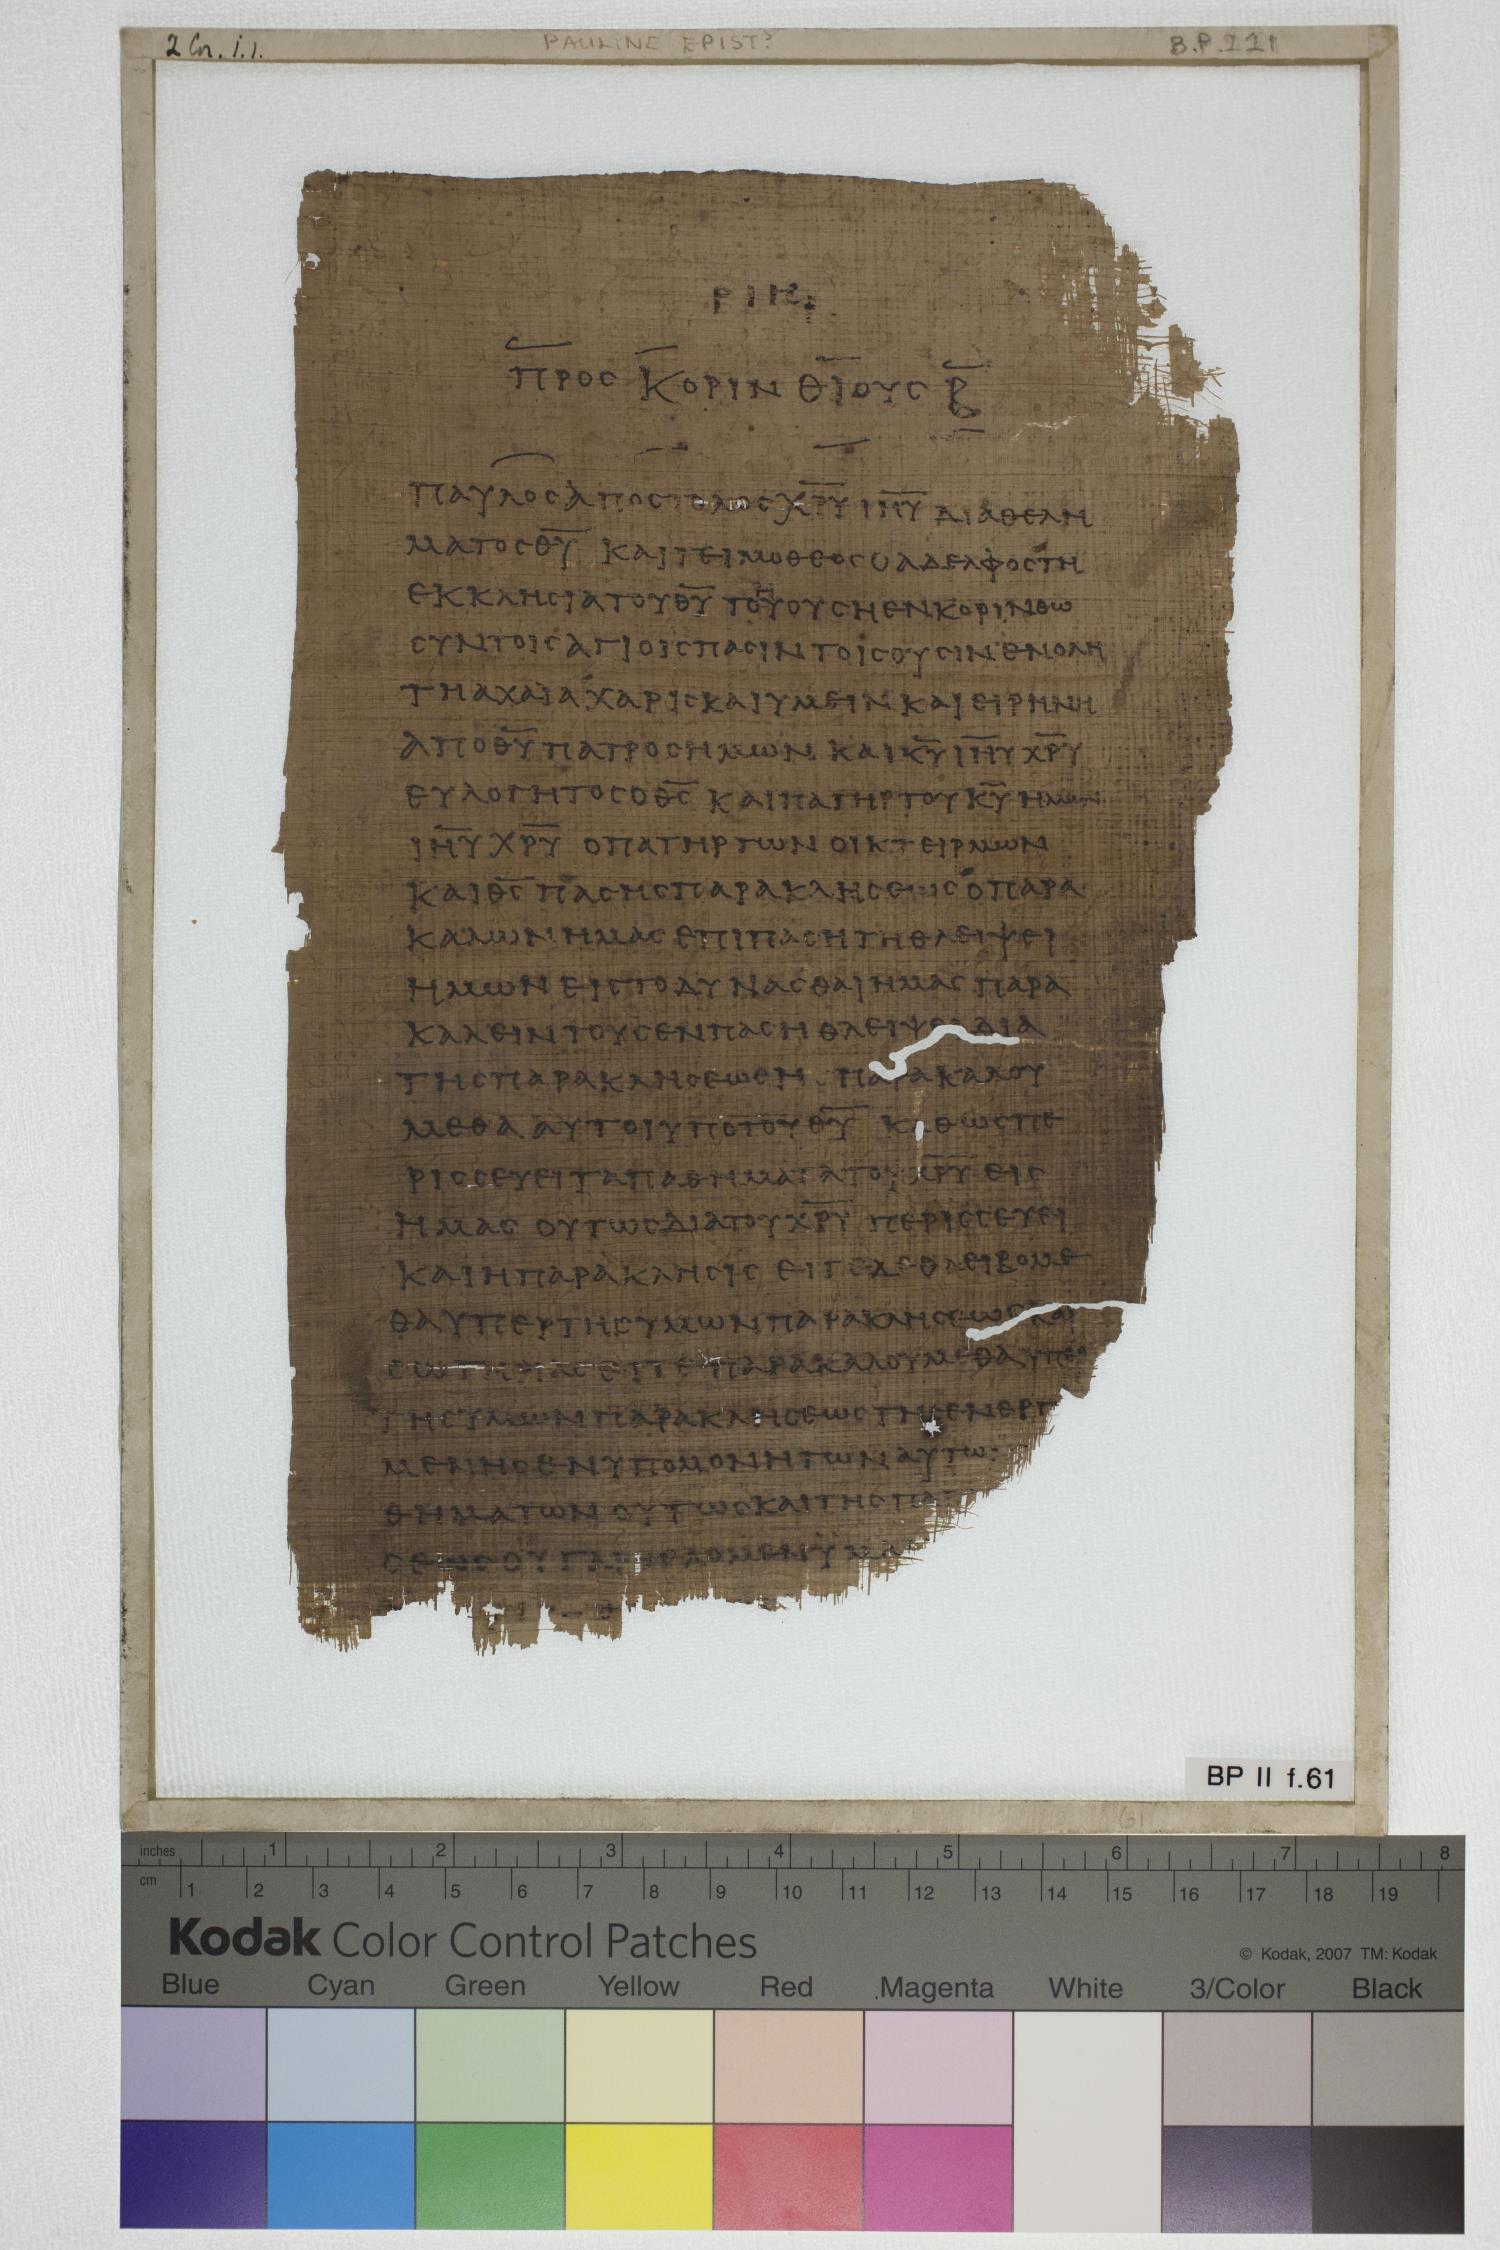 2 Cor. i.1.
PAULINE EPIST?
B.P.221
ΡΙΗ
ΠΡΟΣ ΚΟΡΙΝΘΙΟΥΣ Β
ΠΑΥΛΟΣ ΑΠΟΣΤΟΛΟΣ ΧΡΥ ΙΗΥ ΔΙΑ ΘΕΛΗ
ΜΑΤΟΣ ΘΥ ΚΑΙ ΤΕΙΜΟΘΕΟΣ Ο ΑΔΕΛΦΟΣ ΤΗ
ΕΚΚΛΗΣΙΑ ΤΟΥ ΘΥ ΤΟΥ ΟΥΣΗ ΕΝ ΚΟΡΙΝΘΩ
ΣΥΝ ΤΟΙΣ ΑΓΙΟΙΣ ΠΑΣΙΝ ΤΟΙΣ ΟΥΣΙΝ ΕΝ ΟΛΗ
ΤΗ ΑΧΑΙΑ ΧΑΡΙΣ ΚΑΙ ΥΜΕΙΝ ΚΑΙ ΕΙΡΗΝΗ
ΑΠΟ ΘΥ ΠΑΤΡΟΣ ΗΜΩΝ ΚΑΙ ΚΥ ΙΗΥ ΧΡΥ
ΕΥΛΟΓΗΤΟΣ Ο ΘΣ ΚΑΙ ΠΑΤΗΡ ΤΟΥ ΚΥ ΗΜΩΝ
ΙΗΥ ΧΡΥ Ο ΠΑΤΗΡ ΤΩΝ ΟΙΚΤΕΙΡΜΩΝ
ΚΑΙ ΘΣ ΠΑΣΗΣ ΠΑΡΑΚΛΗΣΕΩΣ Ο ΠΑΡΑ
ΚΑΛΩΝ ΗΜΑΣ ΕΠΙ ΠΑΣΗ ΤΗ ΘΛΕΙΨΕΙ
ΗΜΩΝ ΕΙΣ ΤΟ ΔΥΝΑΣΘΑΙ ΗΜΑΣ ΠΑΡΑ
ΚΑΛΕΙΝ ΤΟΥΣ ΕΝ ΠΑΣΗ ΘΛΕΙΨΕΙ ΔΙΑ
ΤΗΣ ΠΑΡΑΚΛΗΣΕΩΣ Η ΠΑΡΑΚΑΛΟΥ
ΜΕΘΑ ΑΥΤΟΙ ΥΠΟ ΤΟΥ ΘΥ ΚΑΘΩΣ ΠΕ
ΡΙΣΣΕΥΕΙ ΤΑ ΠΑΘΗΜΑΤΑ ΤΟΥ ΧΡΥ ΕΙΣ
ΗΜΑΣ ΟΥΤΩΣ ΔΙΑ ΤΟΥ ΧΡΥ ΠΕΡΙΣΣΕΥΕΙ
ΚΑΙ Η ΠΑΡΑΚΛΗΣΙΣ ΕΙΤΕ ΔΕ ΘΛΕΙΒΟΜΕ
ΘΑ ΥΠΕΡ ΤΗΣ ΥΜΩΝ ΠΑΡΑΚΛΗΣΕΩΣ ΚΑΙ
ΣΩΤΗΡΙΑΣ ΕΙΤΕ ΠΑΡΑΚΑΛΟΥΜΕΘΑ ΥΠΕΡ
ΤΗΣ ΥΜΩΝ ΠΑΡΑΚΛΗΣΕΩΣ ΤΗΣ ΕΝΕΡΓ
ΜΕΝΗΣ ΕΝ ΥΠΟΜΟΝΗ ΤΩΝ ΑΥΤΩ
ΘΗΜΑΤΩΝ ΟΥΤΩΣ ΚΑΙ ΤΗΣ ΠΑ
ΣΕΩΣ ΟΥ ΓΑΡ
BP II f.61
61
inches 1 2 3 4 5 6 7 8
cm 1 2 3 4 5 6 7 8 9 10 11 12 13 14 15 16 17 18 19
Kodak Color Control Patches
© Kodak, 2007 TM: Kodak
Blue Cyan Green Yellow Red Magenta White 3/Color Black